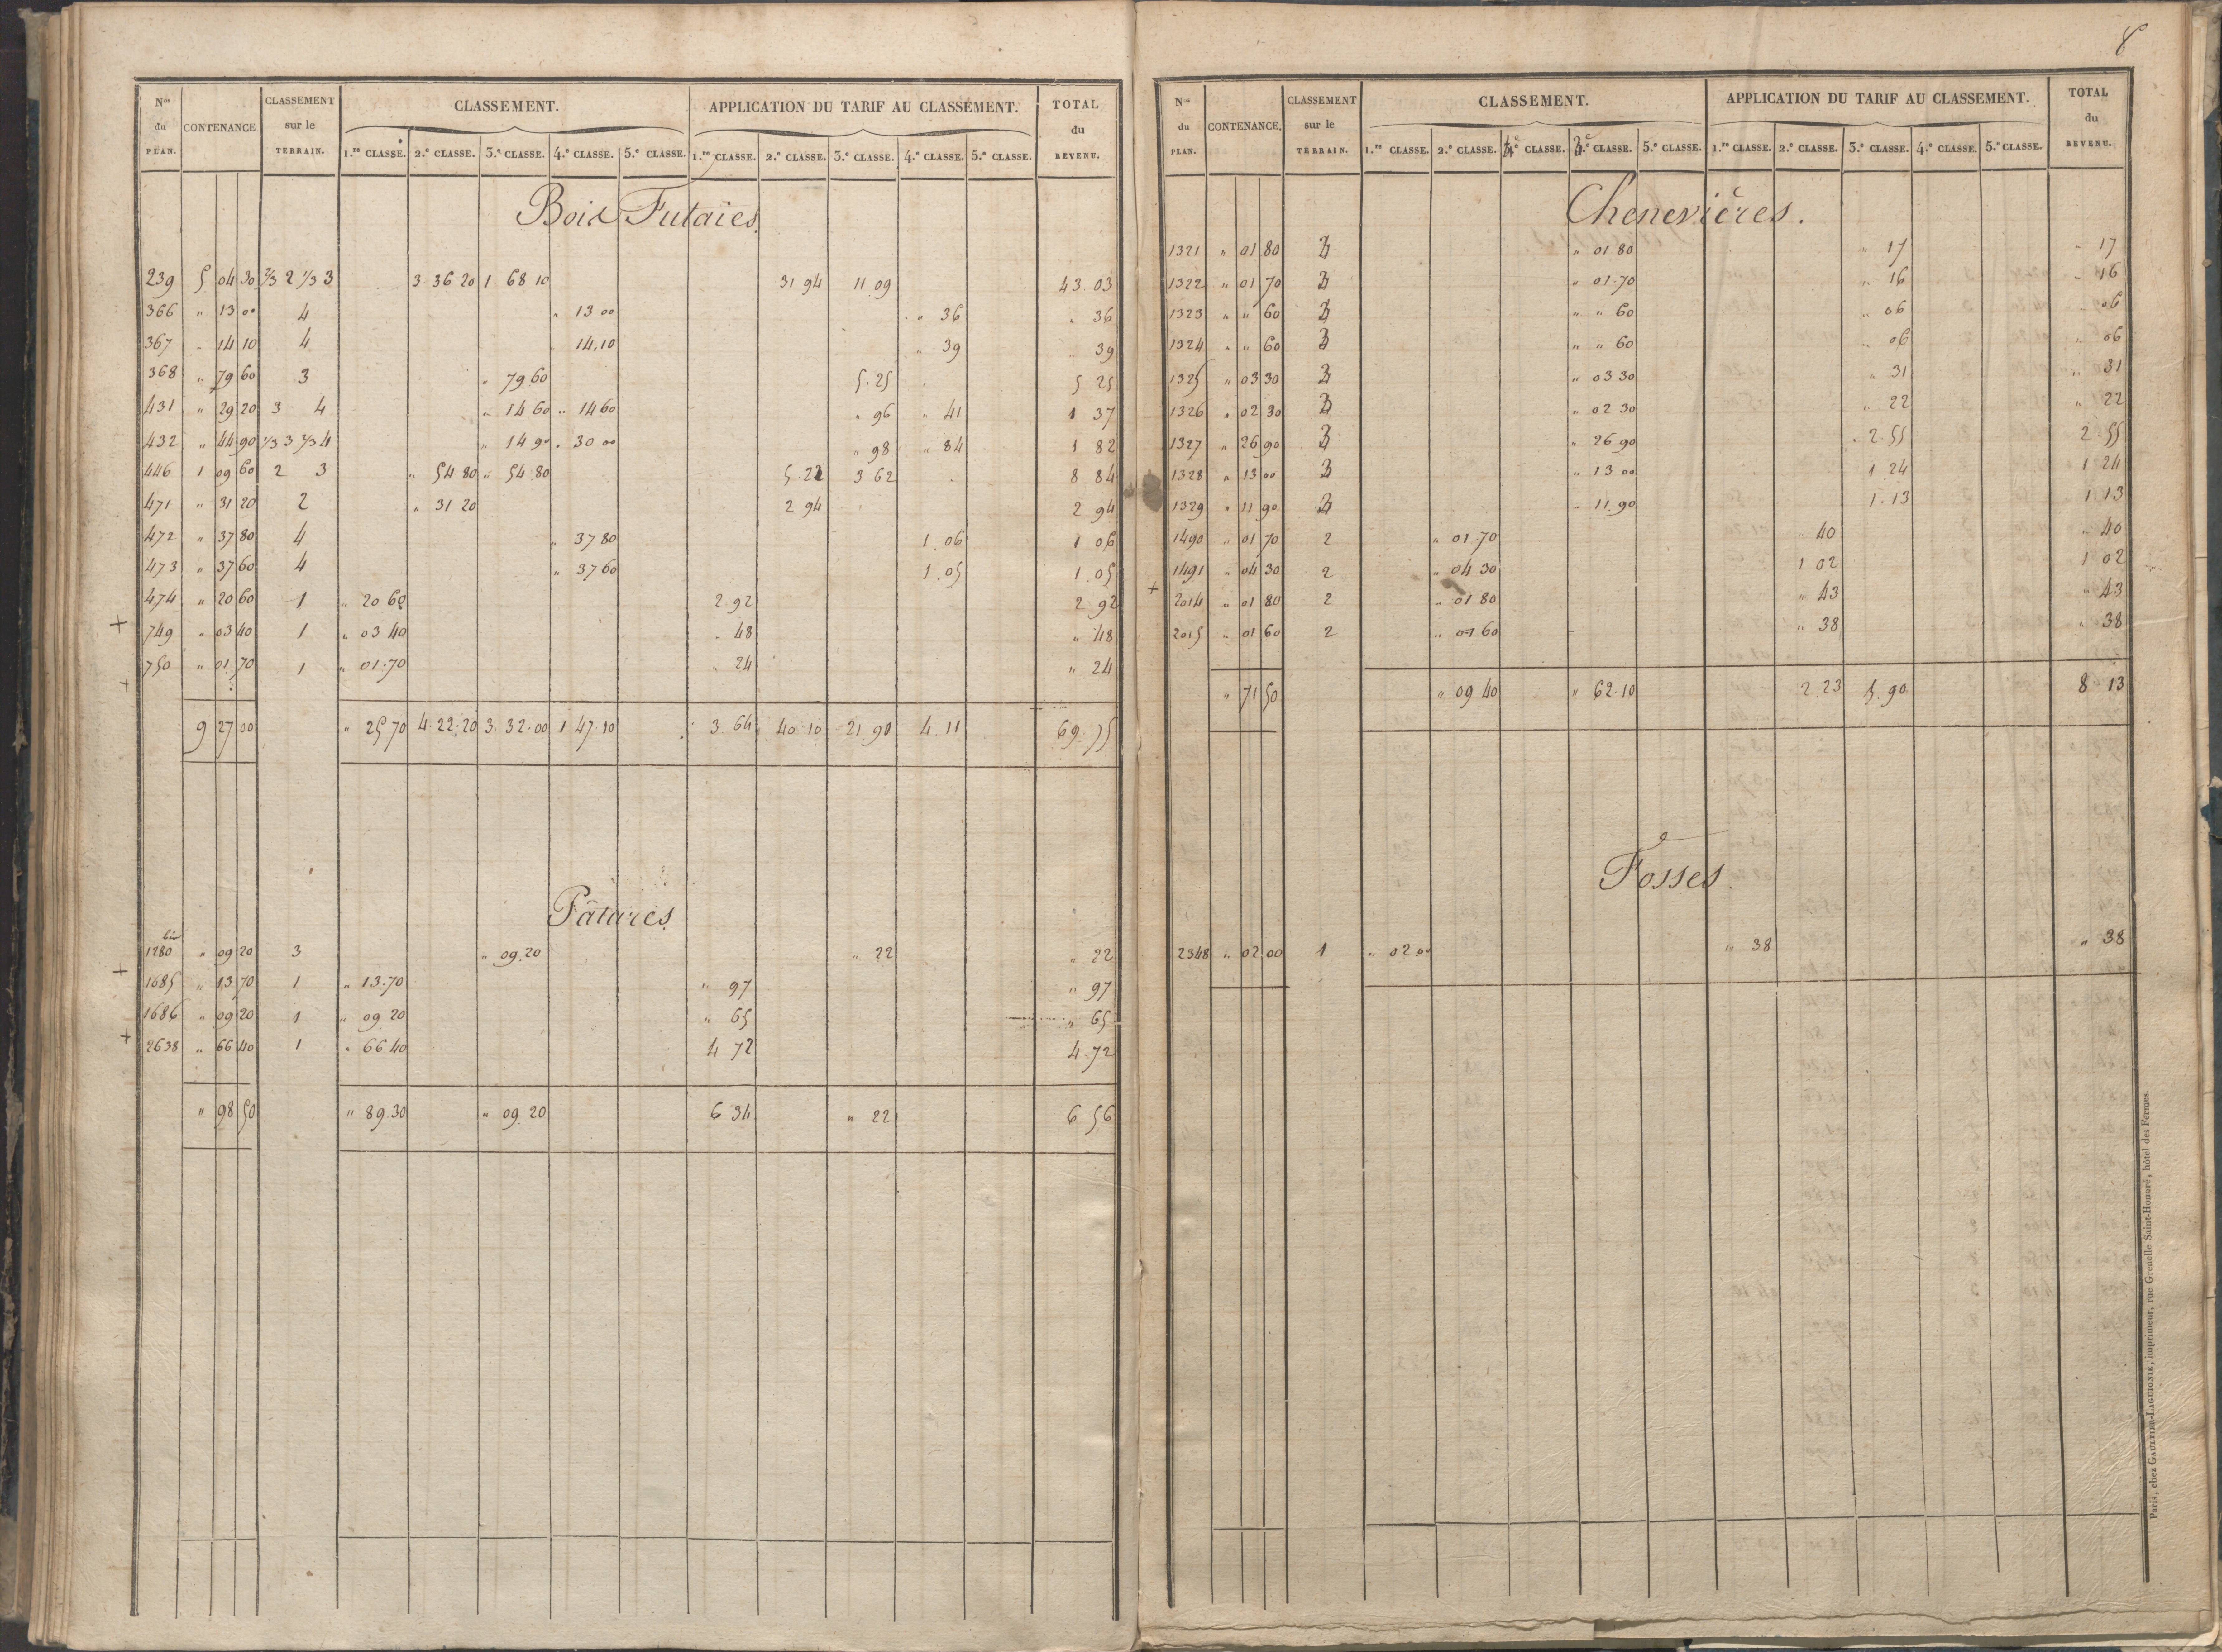 8
Nos du PLAN. CONTENANCE. CLASSEMENT sur le TERRAIN. CLASSEMENT. APPLICATION DU TARIF AU CLASSEMENT. TOTAL du REVENU.
1.re CLASSE. 2.e CLASSE. 3.e CLASSE. 4.e CLASSE. 5.e CLASSE. 1.re CLASSE. 2.e CLASSE. 3.e CLASSE. 4.e CLASSE. 5.e CLASSE.
Bois Futaies.
239 5 04 30 2/3 2 1/3 3 3 36 20 1 68 10 31 94 11 09 43 03
366 " 13 00 4 " 13 00 " 36 " 36
367 " 14 10 4 " 14,10 " 39 " 39
368 " 79 60 3 " 79 60 5.25 5 25
431 " 29 20 3 4 " 14 60 " 14 60 " 96 " 41 1 37
432 " 44 90 1/3 3 2/3 4 " 14 90 " 30 00 " 98 " 84 1 82
446 1 09 60 2 3 " 54 80 " 54 80 5 22 3 62 8 84
471 " 31 20 2 " 31 20 2 94 2 94
472 " 37 80 4 " 37 80 1.06 1 06
473 " 37 60 4 " 37 60 1.05 1.05
474 " 20 60 1 " 20 60 2 92 2 92
+ 749 " 03 40 1 " 03 40 " 48 " 48
+ 750 " 01 70 1 " 01.70 " 24 " 24
9 27 00 " 25 70 4.22.20 3.32.00 1 47.10 3 64 40 10 21 90 4.11 69.75
Pâtures
1280 bis " 09 20 3 " 09.20 " 22 " 22
+ 1685 " 13 70 1 " 13.70 " 97 " 97
1686 " 09 20 1 " 09 20 " 65 " 65
+ 2638 " 66 40 1 " 66 40 4 72 4.72
" 98 50 " 89.30 " 09 20 6 34 " 22 6 56
Nos du PLAN. CONTENANCE. CLASSEMENT sur le TERRAIN. CLASSEMENT. APPLICATION DU TARIF AU CLASSEMENT. TOTAL du REVENU.
1.re CLASSE. 2.e CLASSE. 4.e CLASSE. 3.e CLASSE. 5.e CLASSE. 1.re CLASSE. 2.e CLASSE. 3.e CLASSE. 4.e CLASSE. 5.e CLASSE.
Chenevières.
1321 " 01 80 3 " 01 80 " 17 " 17
1322 " 01 70 3 " 01.70 " 16 " 16
1323 " " 60 3 " " 60 " 06 " 06
1324 " " 60 3 " " 60 " 06 " 06
1325 " 03 30 3 " 03 30 " 31 " 31
1326 " 02 30 3 " 02 30 " 22 " 22
1327 " 26 90 3 " 26 90 2.55 2 55
1328 " 13 00 3 " 13 00 1 24 1 24
1329 " 11 90 3 " 11.90 1.13 1 13
1490 " 01 70 2 " 01.70 " 40 " 40
1491 " 04 30 2 " 04 30 1 02 1 02
+ 2014 " 01 80 2 " 01 80 " 43 " 43
2015 " 01 60 2 " 01 60 " 38 " 38
" 71 50 " 09 40 " 62.10 2.23 5.90 8 13
Fosses
2348 " 02 00 1 " 02 00 " 38 " 38
Paris, chez GAULTIER-LAGUIONIE, imprimeur, rue Grenelle Saint-Honoré, hôtel des Fermes.